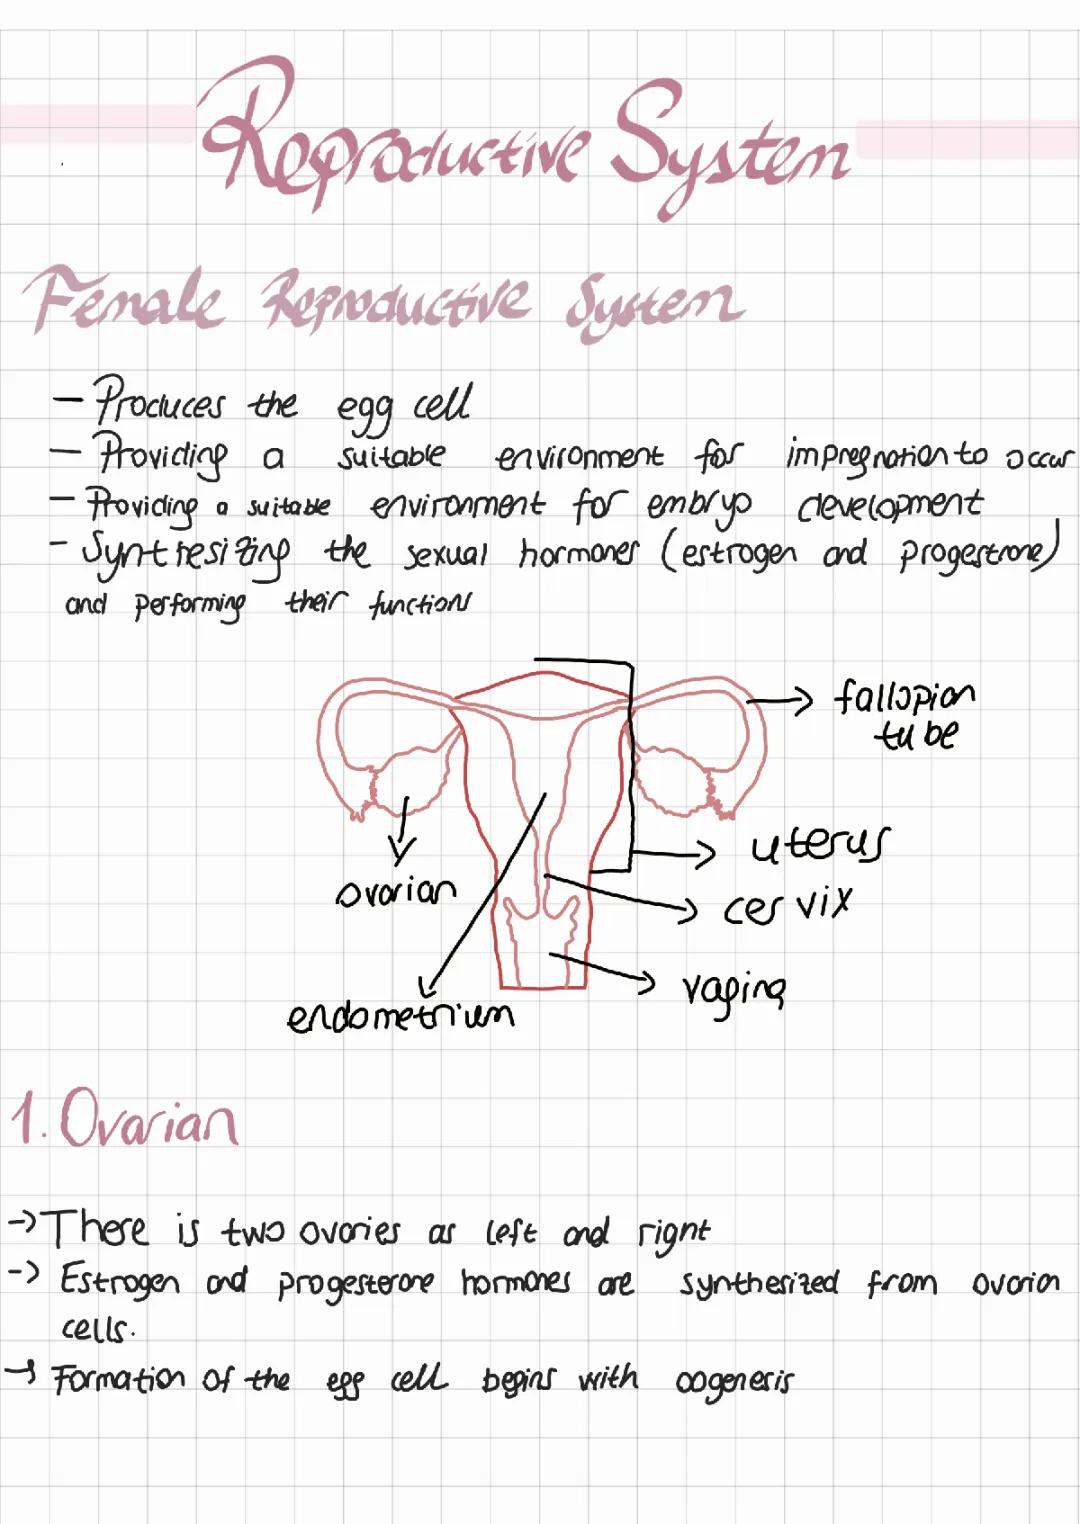 Reproductive System
Female Reproductive System
- Produces the egg cell
- Providing a suitable environment for impregnation to occur
- Providing a suitable environment for embryo development
- Synthesizing the sexual hormones (estrogen and progestrone)
and performing their functions
fallopian
tube
uterus
ovarian
cervix
vagina
endometrium
1. Ovarian
→ There is two ovaries as left and right
→ Estrogen and progesterone hormones are synthesized from ovarian
cells.
→ Formation of the egg cell begins with oogenesis